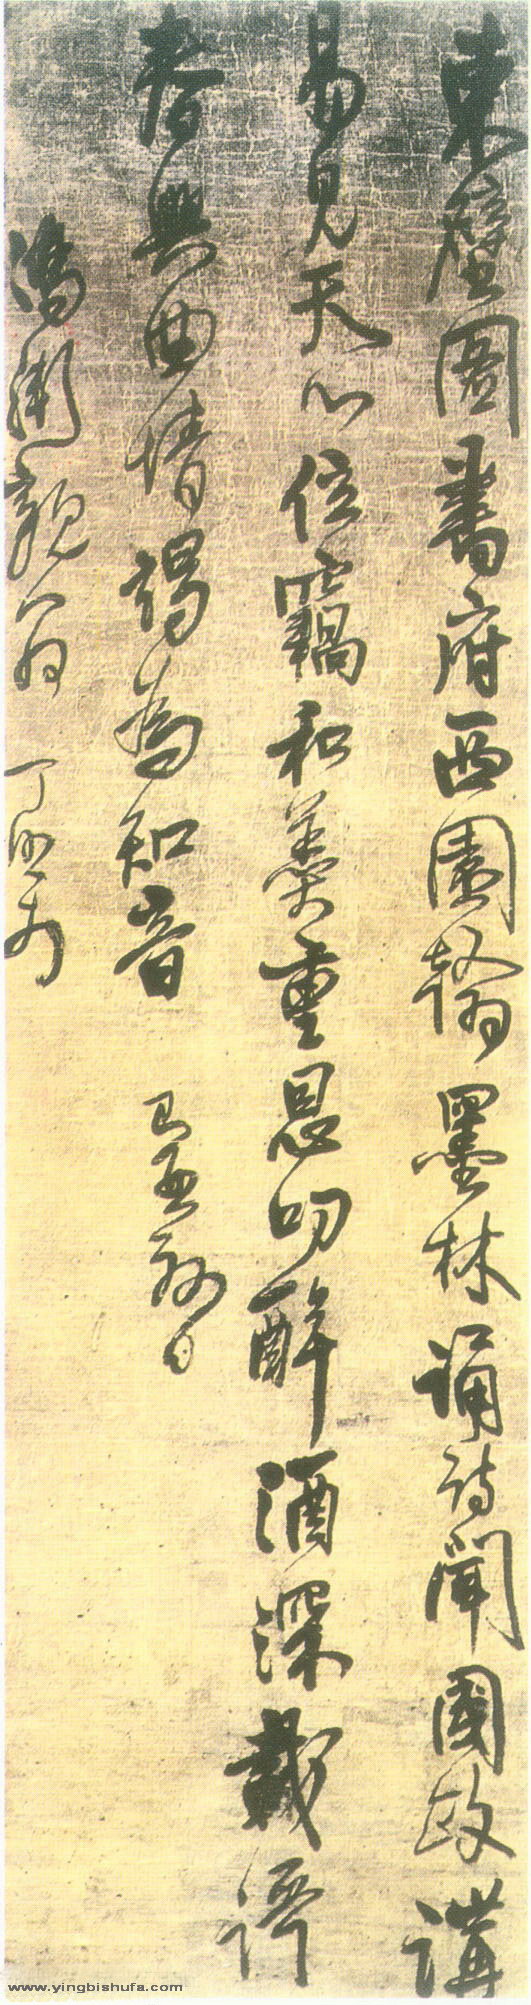 東壁圖書府西園翰墨林誦詩聞國政講
易見天心位竊和羹重恩叨醉酒深載謌
春興曲情竭為知音
親翁
www.yingbishufa.com